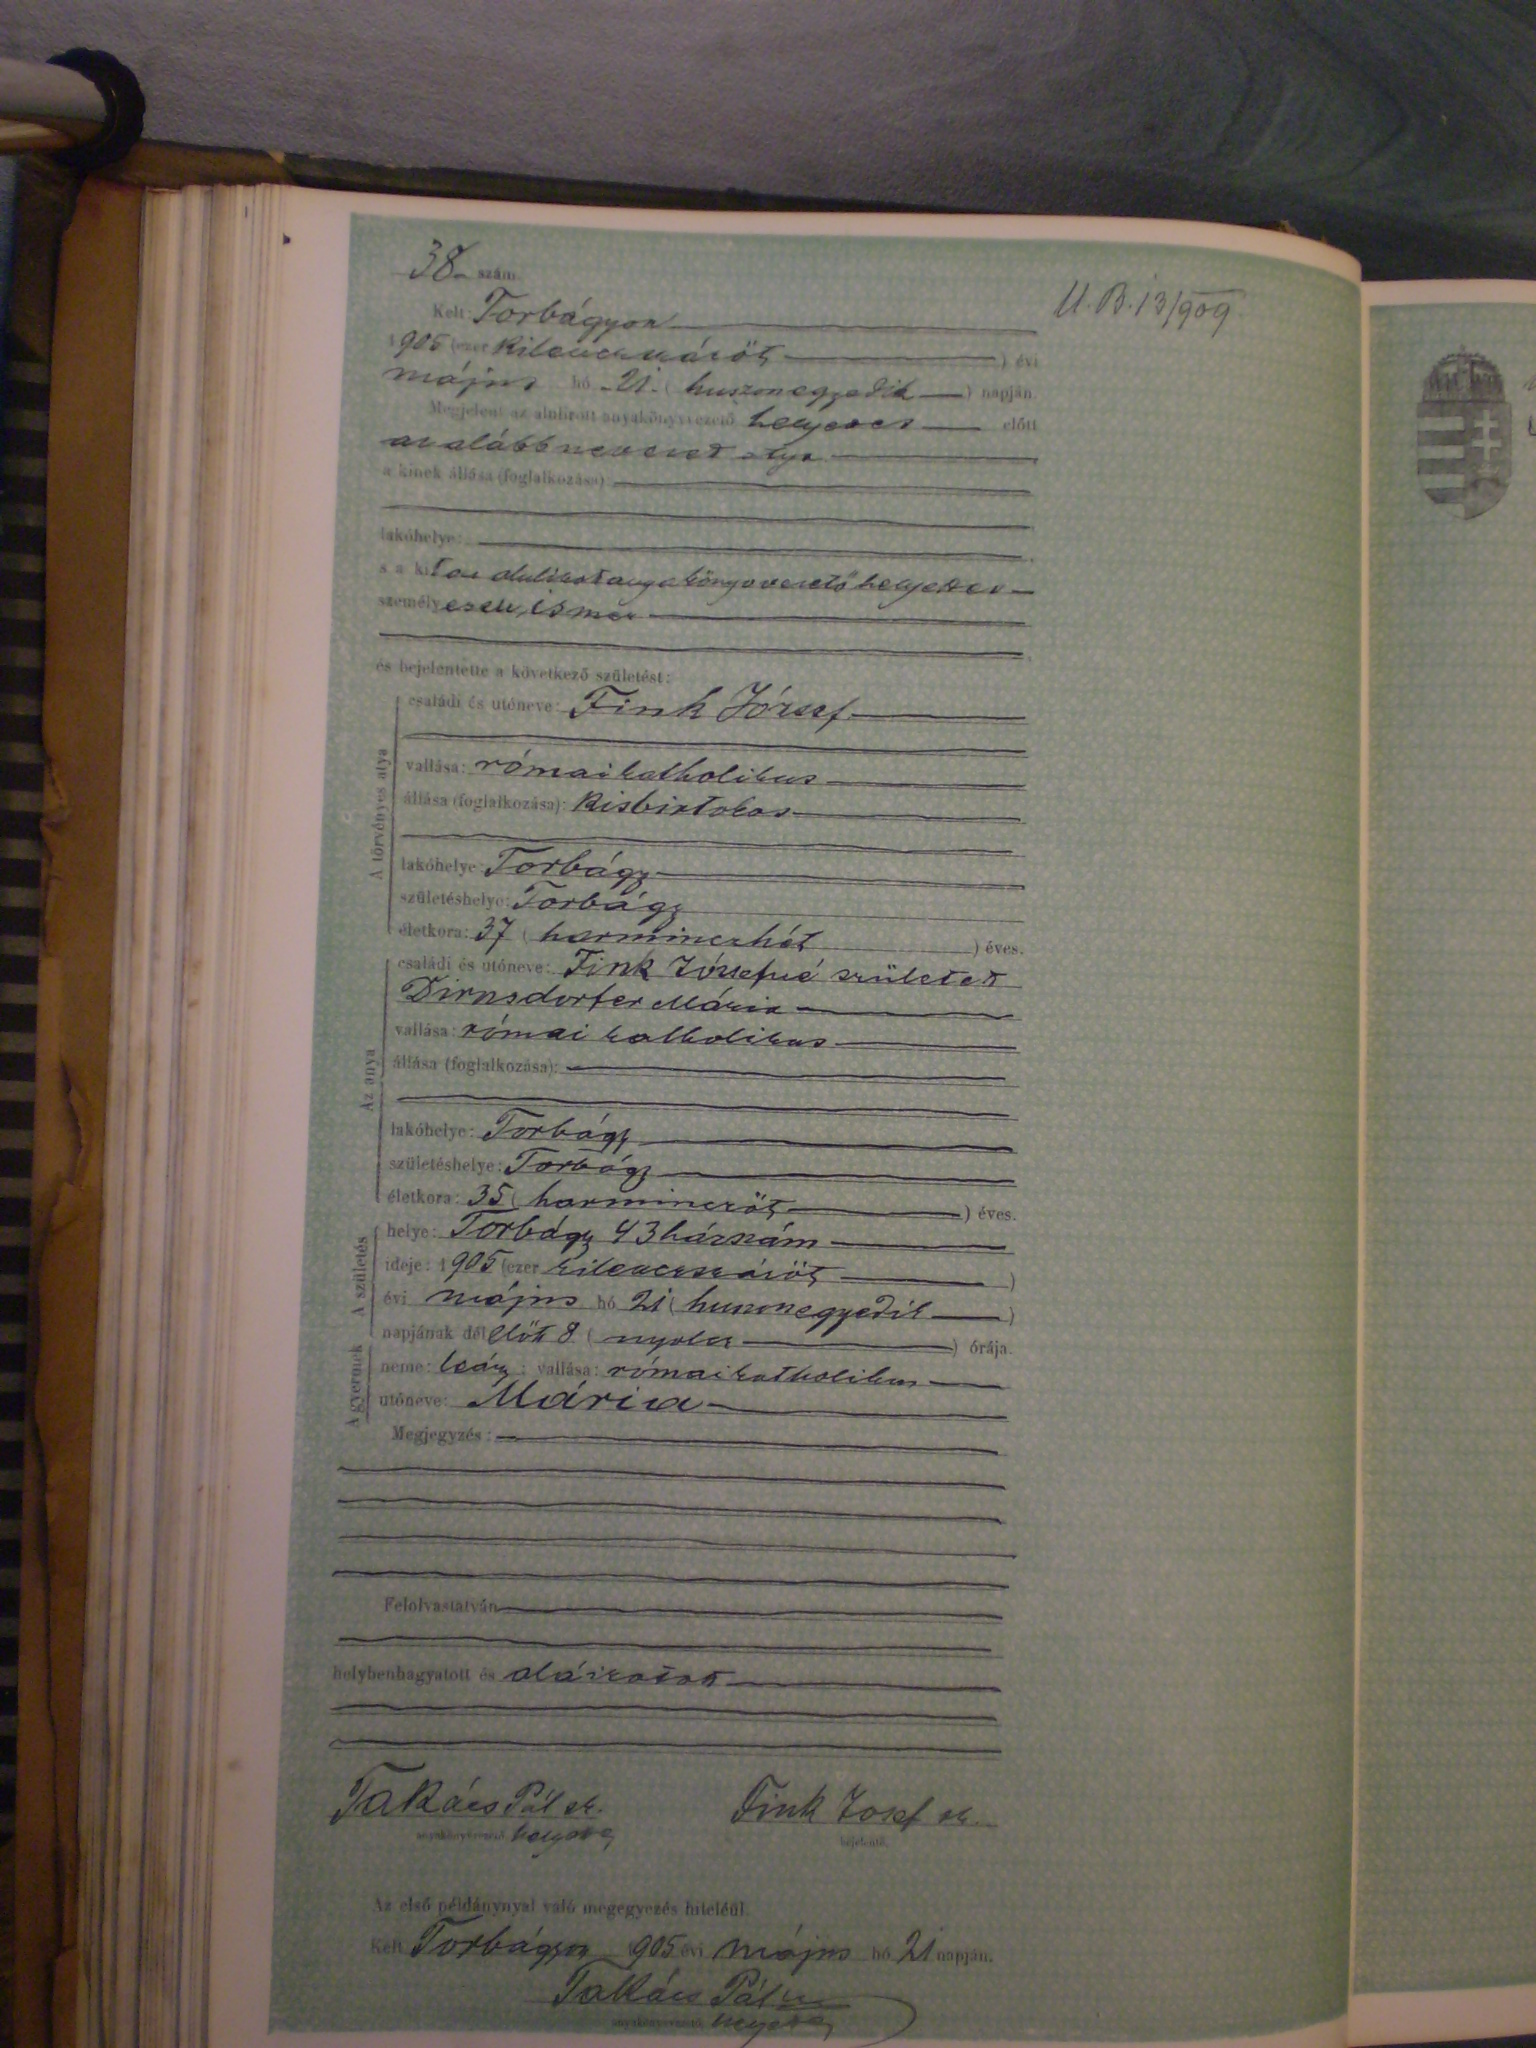 38 szám.
U. B. 13/909
Kelt: Torbágyon
1905 (ezer kilenczszázöt) évi
május hó 21 (huszonegyedik) napján.
Megjelent az alulirott anyakönyvvezető helyettes előtt
az alább nevezett atya
a kinek állása (foglalkozása)
lakóhelye:
s a kit az alulirot anyakönyvvezető helyettes
személyesen ismer
és bejelentette a következő születést:
A törvényes atya
családi és utóneve: Fink József
vallása: római katholikus
állása (foglalkozása): Kisbirtokos
lakóhelye: Torbágy
születéshelye: Torbágy
életkora: 37 (harminczhét) éves.
Az anya
családi és utóneve: Fink Józsefné született
Dirnsdorfer Mária
vallása: római katholikus
állása (foglalkozása):
lakóhelye: Torbágy
születéshelye: Torbágy
életkora: 35 (harminczöt) éves.
A születés
helye: Torbágy 43 házszám
ideje: 1905 (ezer kilenczszázöt)
évi május hó 21 (huszonegyedik)
napjának délelőtt 8 (nyolcz) órája.
A gyermek
neme: leány; vallása: római katholikus
utóneve: Mária
Megjegyzés:
Felolvastatván
helybenhagyatott és aláiratott
Takács Pál sk. Fink Josef sk.
anyakönyvvezető helyettes bejelentő.
Az első példánynyal való megegyezés hiteléül.
Kelt Torbágyon 1905 évi május hó 21 napján.
Takács Pál
anyakönyvvezető helyettes